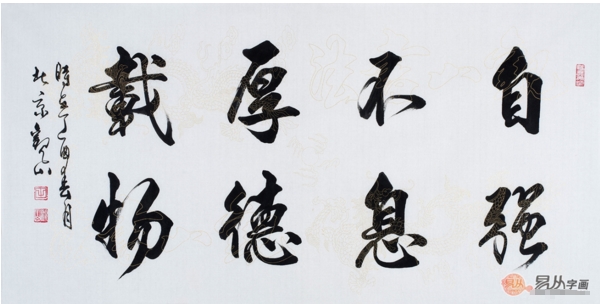 自强
不息
厚德
载物
時在丁酉春月
北京
易从字画